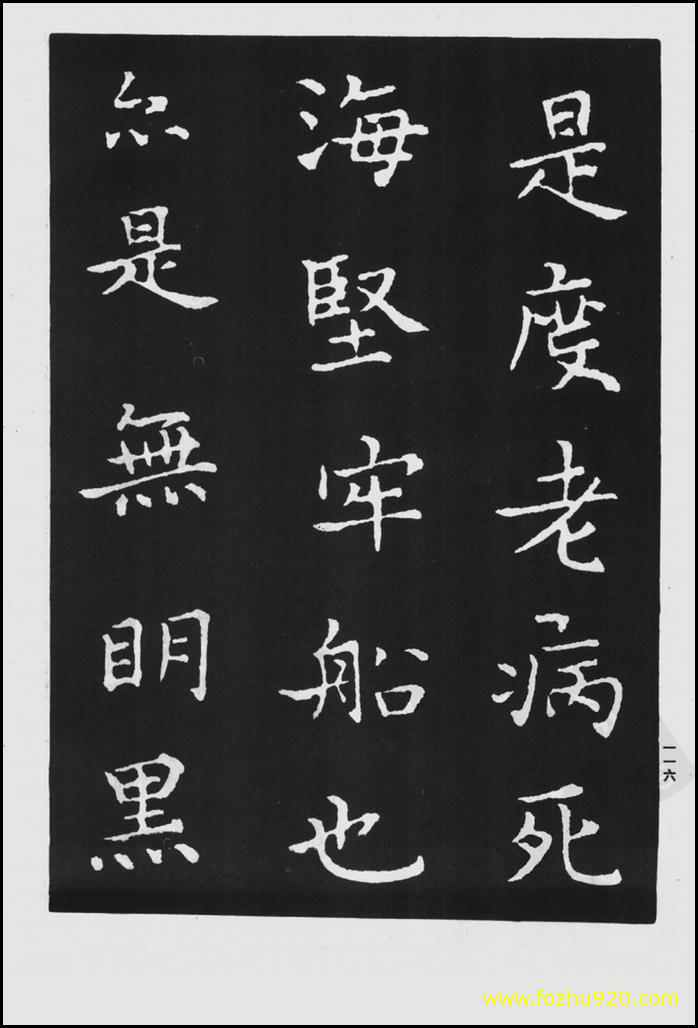 是度老病死
海堅牢船也
亦是無明黑
一一六
www.fozhu920.com